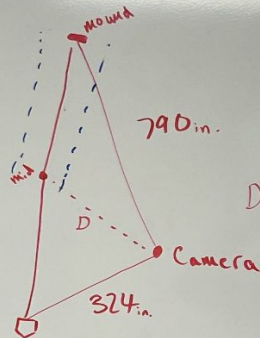 mound
790in.
mid
D
D
Camera
324in.